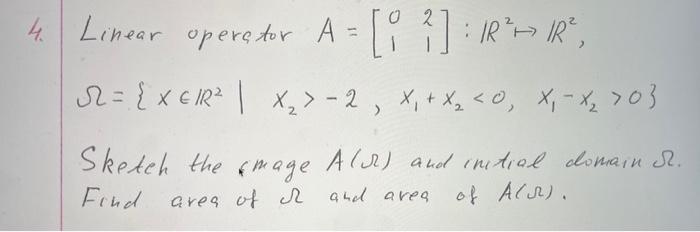 4. Linear operator A = [0 2; 1 1] : ℝ² ↦ ℝ²,
Ω = { x ∈ ℝ² | x₂ > -2 , x₁ + x₂ < 0, x₁ - x₂ > 0 }
Sketch the image A(Ω) and initial domain Ω.
Find area of Ω and area of A(Ω).